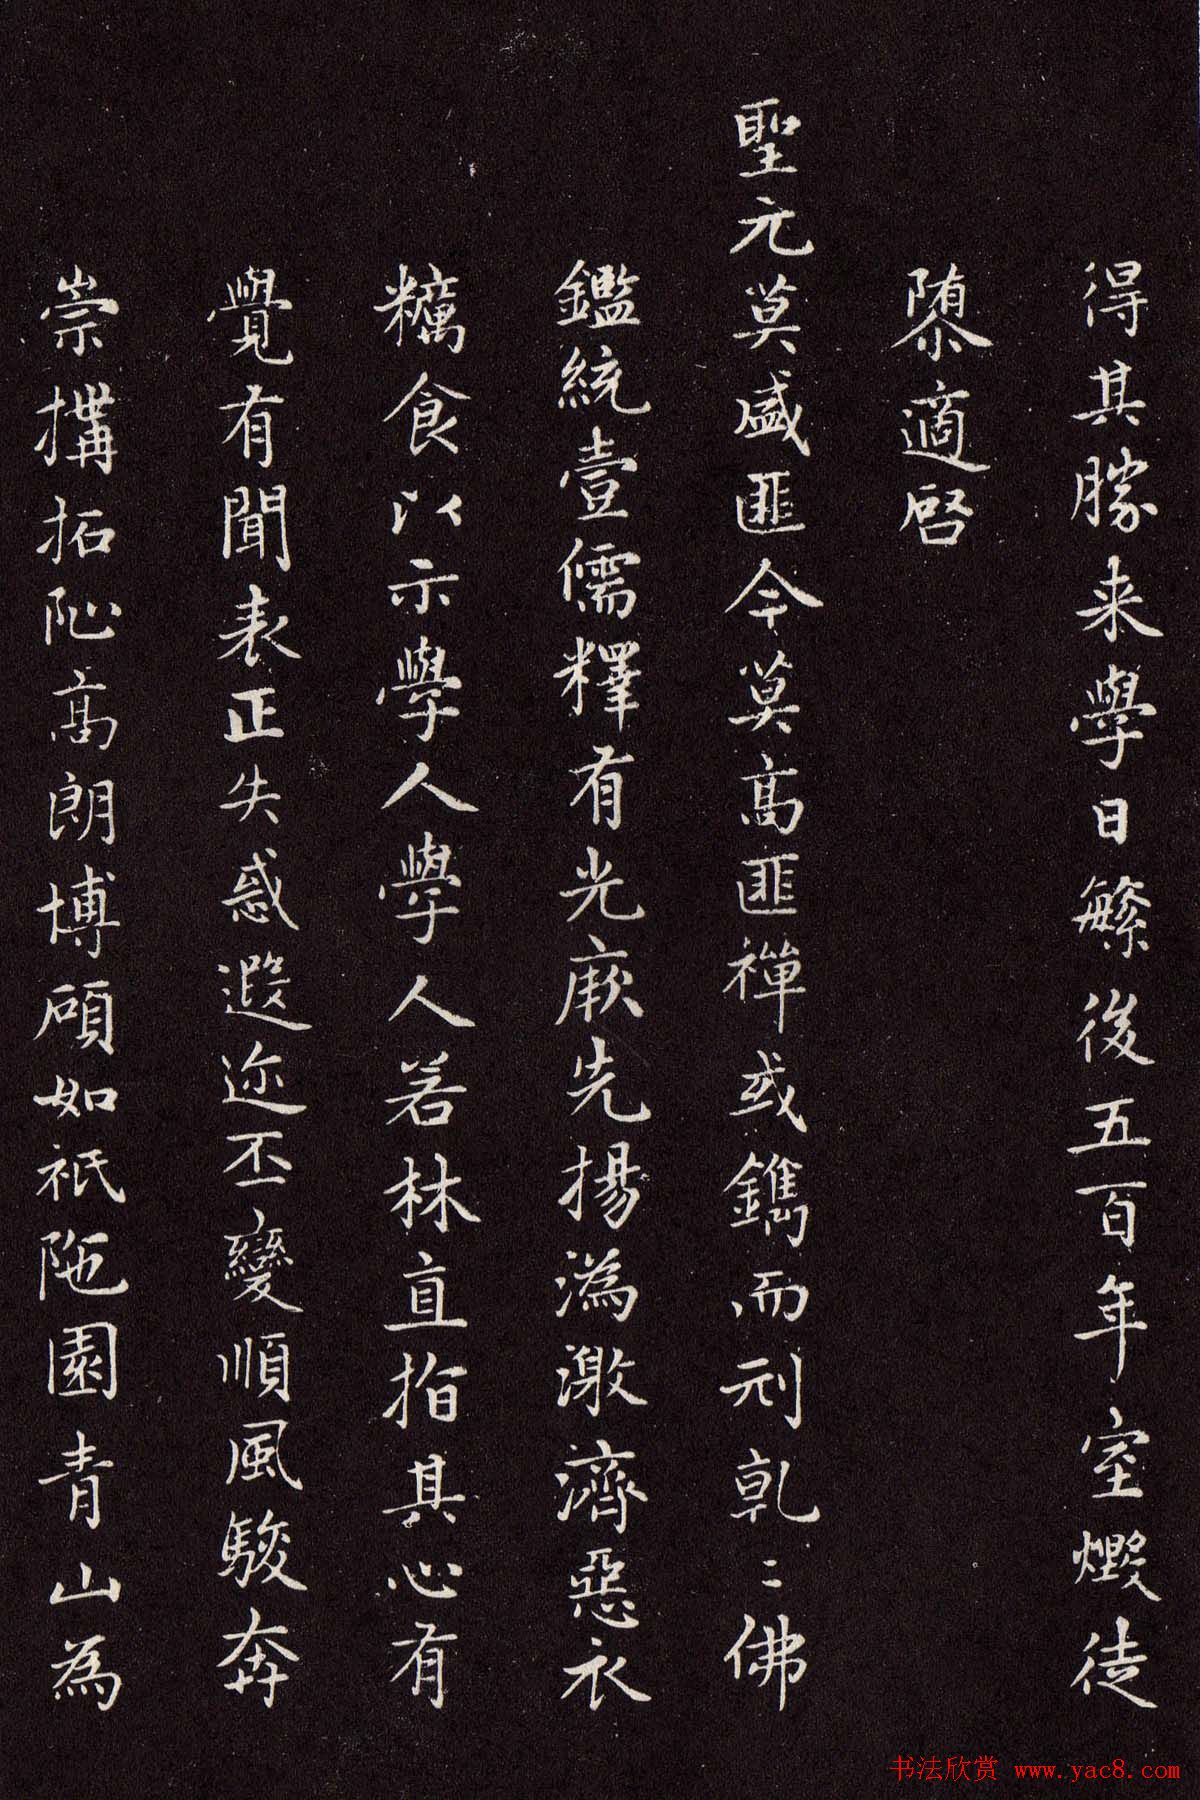 得其勝来學日繁後五百年室燬徒
隳適啓
聖元莫盛匪今莫高匪禪或鐫而刓乾〻佛
鑑統壹儒釋有光厥先揚溈激濟惡衣
糲食以示學人學人若林直指其心有
覺有聞表正失惑遐迩丕變順風駿奔
崇搆拓阯高朗博碩如祇陁園青山為
书法欣赏 www.yac8.com